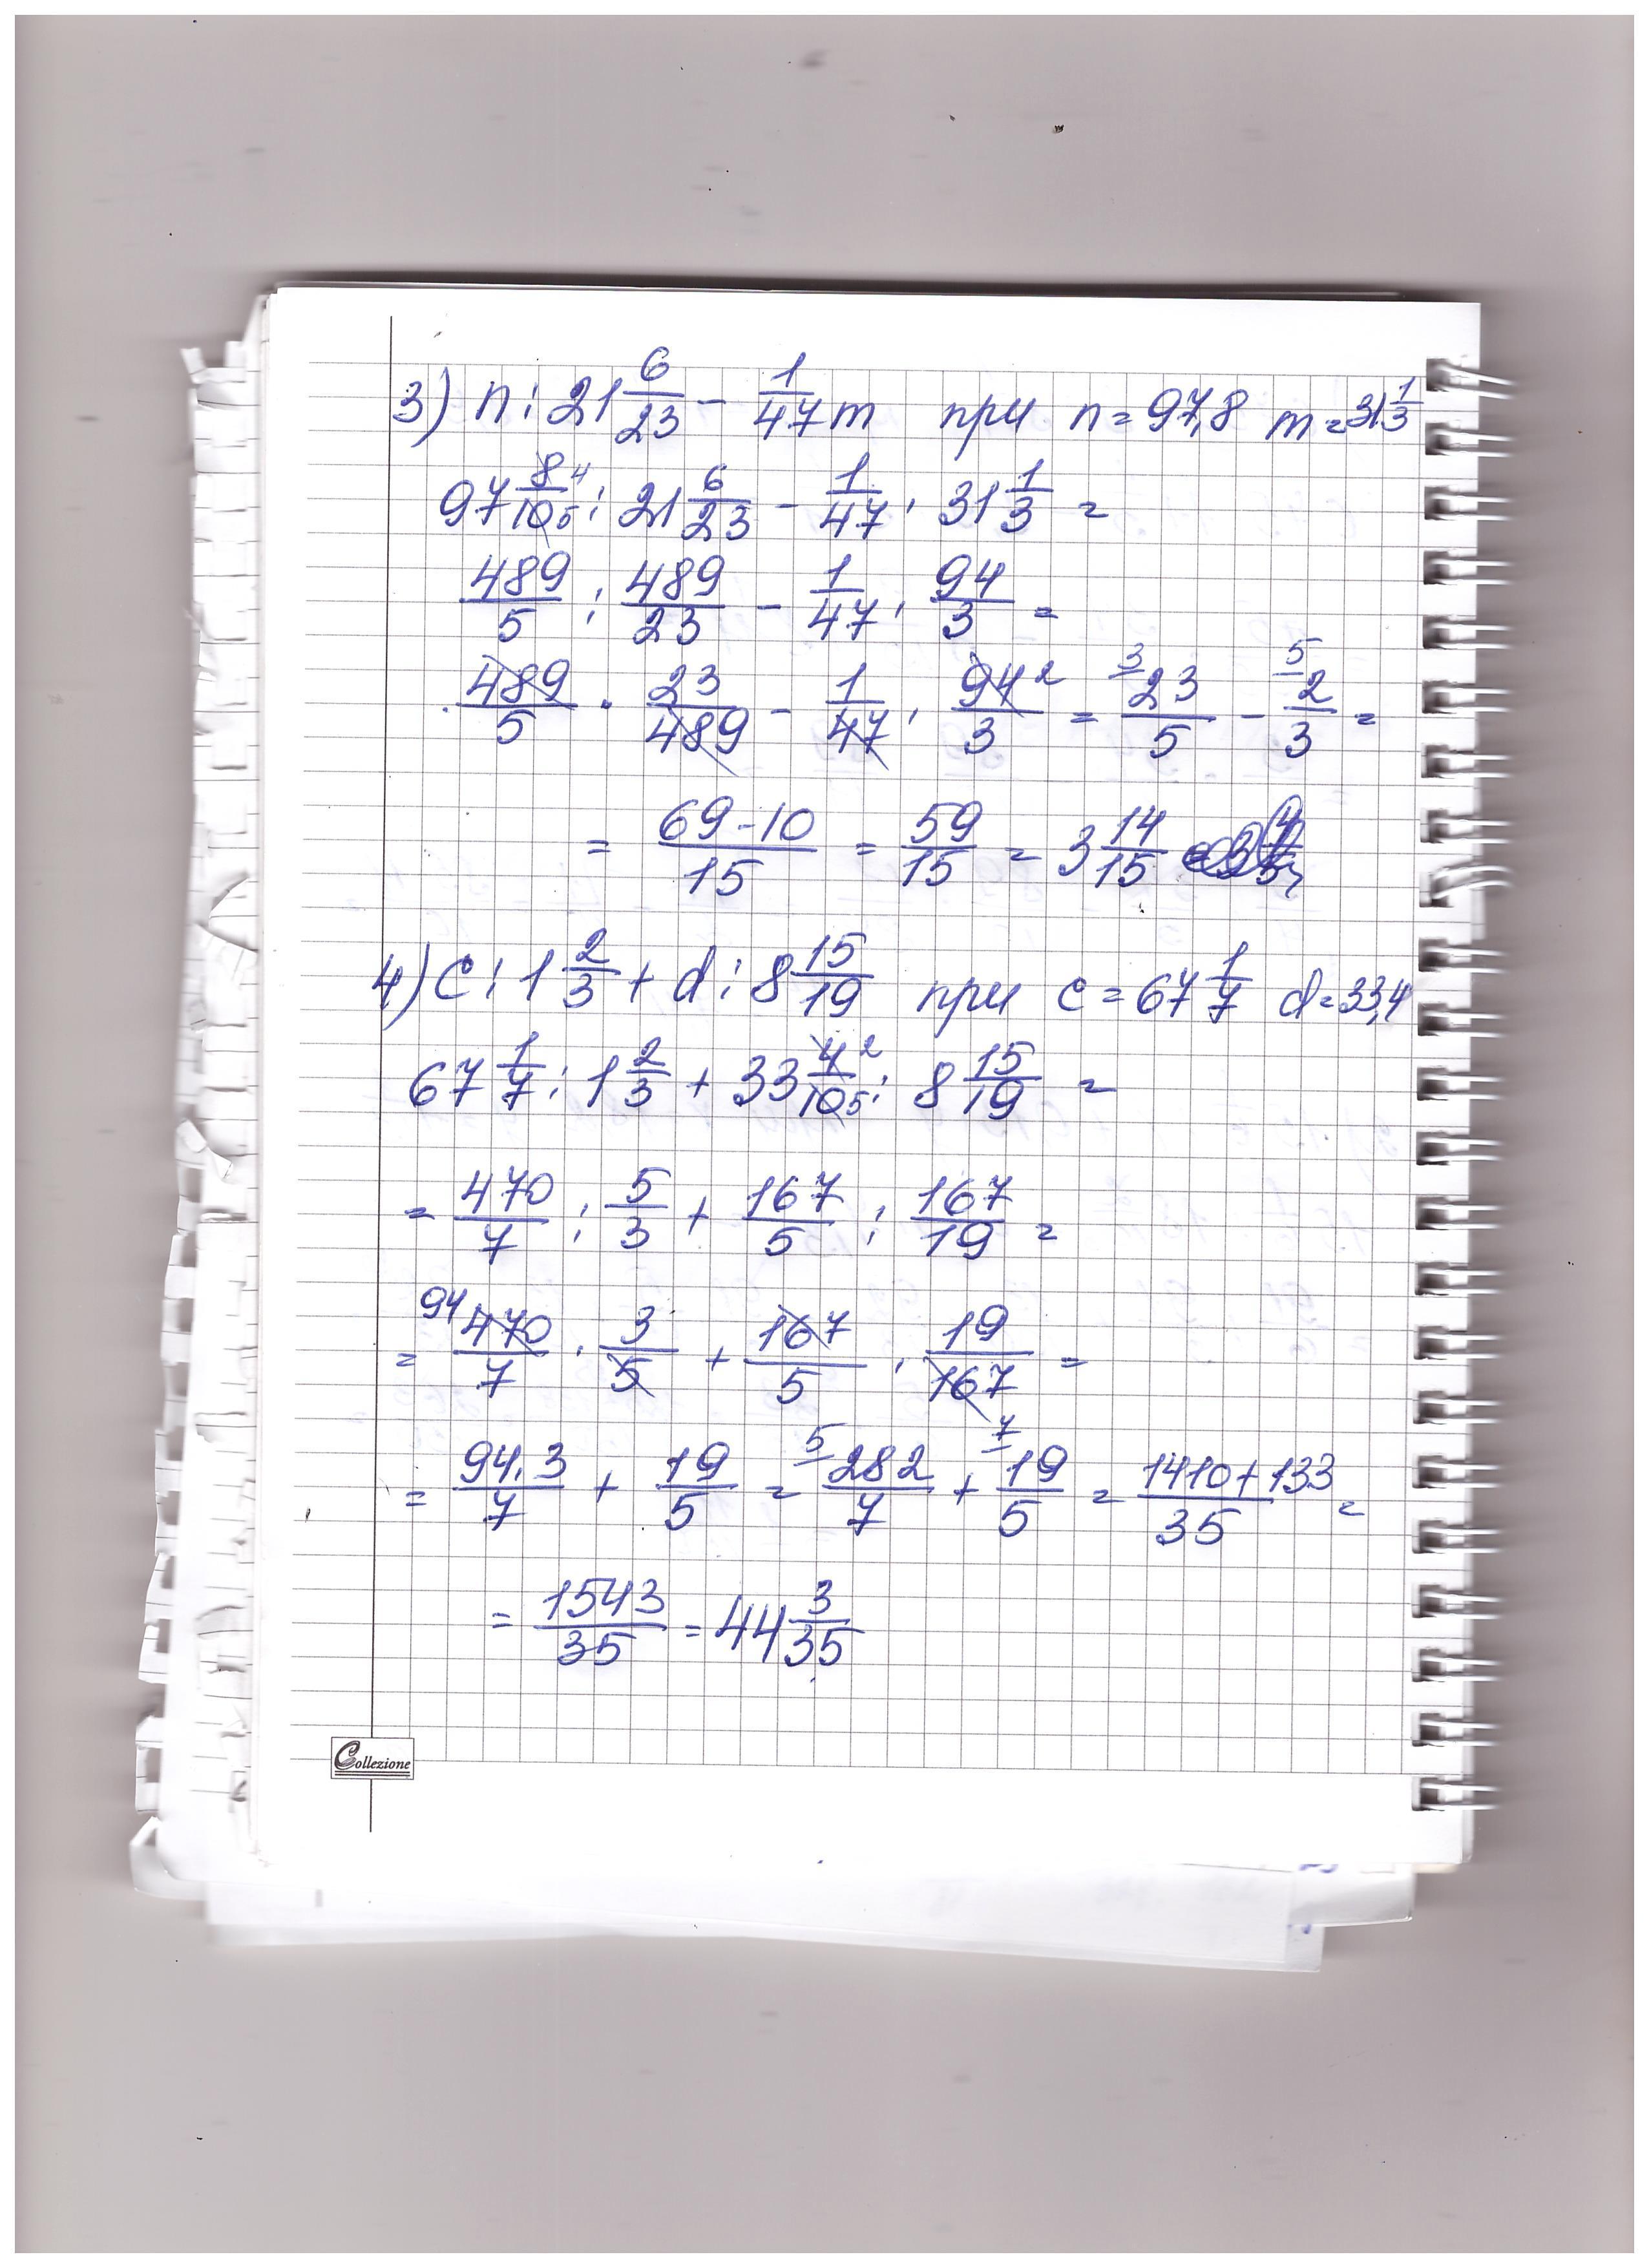 3) n : 21 6/23 - 1/47 m при n = 97,8 m = 31 1/3
97 8/10 4/5 : 21 6/23 - 1/47 · 31 1/3 =
489/5 : 489/23 - 1/47 · 94/3 =
489/5 · 23/489 - 1/47 · 94/3 2 = 3 23/5 - 5 2/3 =
= 69-10/15 = 59/15 = 3 14/15
4) c : 1 2/3 + d : 8 15/19 при c = 67 1/7 d = 33,4
67 1/7 : 1 2/3 + 33 4/10 2/5 : 8 15/19 =
= 470/7 : 5/3 + 167/5 : 167/19 =
= 94 470/7 · 3/5 + 167/5 · 19/167 =
= 94·3/7 + 19/5 = 5 282/7 + 7 19/5 = 1410+133/35 =
= 1543/35 = 44 3/35
Collezione